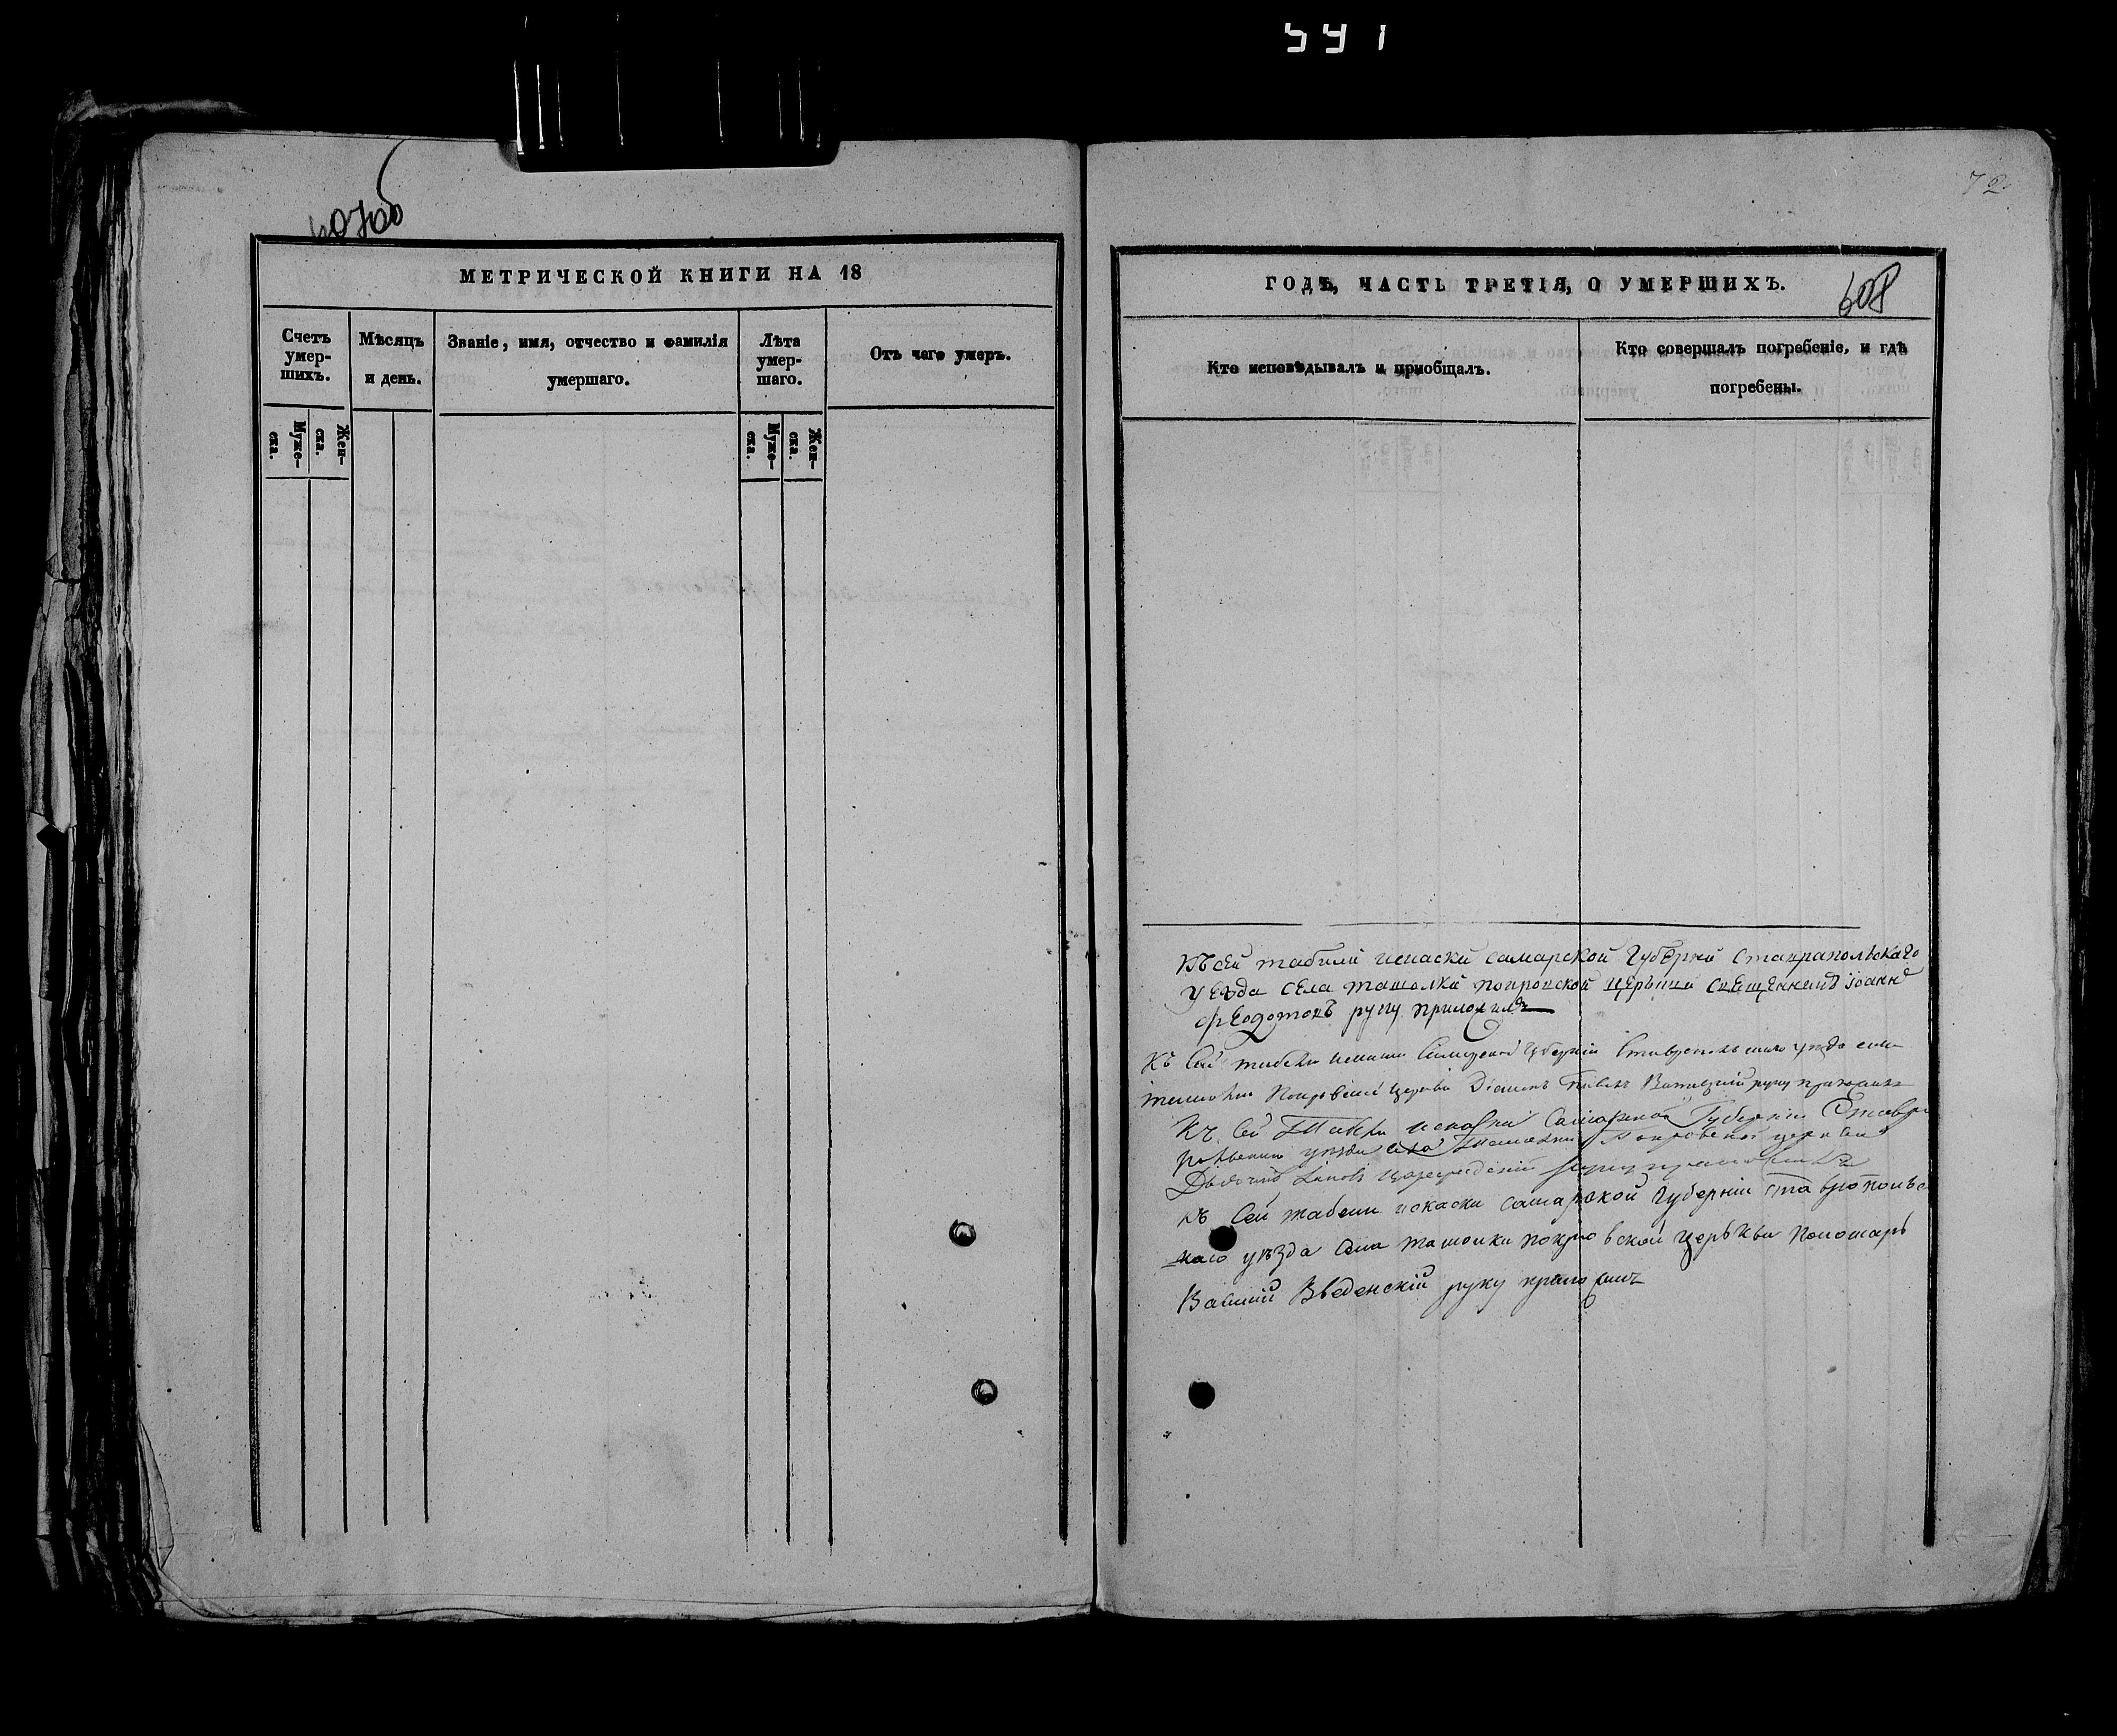 541
72
607об
МЕТРИЧЕСКОЙ КНИГИ НА 18
Счетъ умер-
шихъ.
Муже-
ска.
Жен-
ска.
Мѣсяцъ
и день.
Званіе, имя, отчество и фамилія
умершаго.
Лѣта
умер-
шаго.
Муже-
ска.
Жен-
ска.
Отъ чего умеръ.
ГОДЪ, ЧАСТЬ ТРЕТІЯ, О УМЕРШИХЪ.
608
Кто исповѣдывалъ и приобщалъ.
Кто совершалъ погребеніе, и гдѣ
погребены.
Къ сей табели исписки самарской Губерніи ставрапольскаго
уезда села ташолки покровской церькви священникъ Іоаннъ
Феодотовъ руку приложилъ
Къ сей табели Самарской Губерніи уѣзда села
ташолки Покровской церкви Діаконъ руку приложилъ
Къ сей Табели Самарской Губерніи Ставро
уѣзда села Ташолки Покровской церкви
Дьячокъ руку приложилъ
къ сей табели самарской губерніи ставрополь
скаго уѣзда села ташолки покровской церькви пономарь
Василій Введенскій руку приложилъ